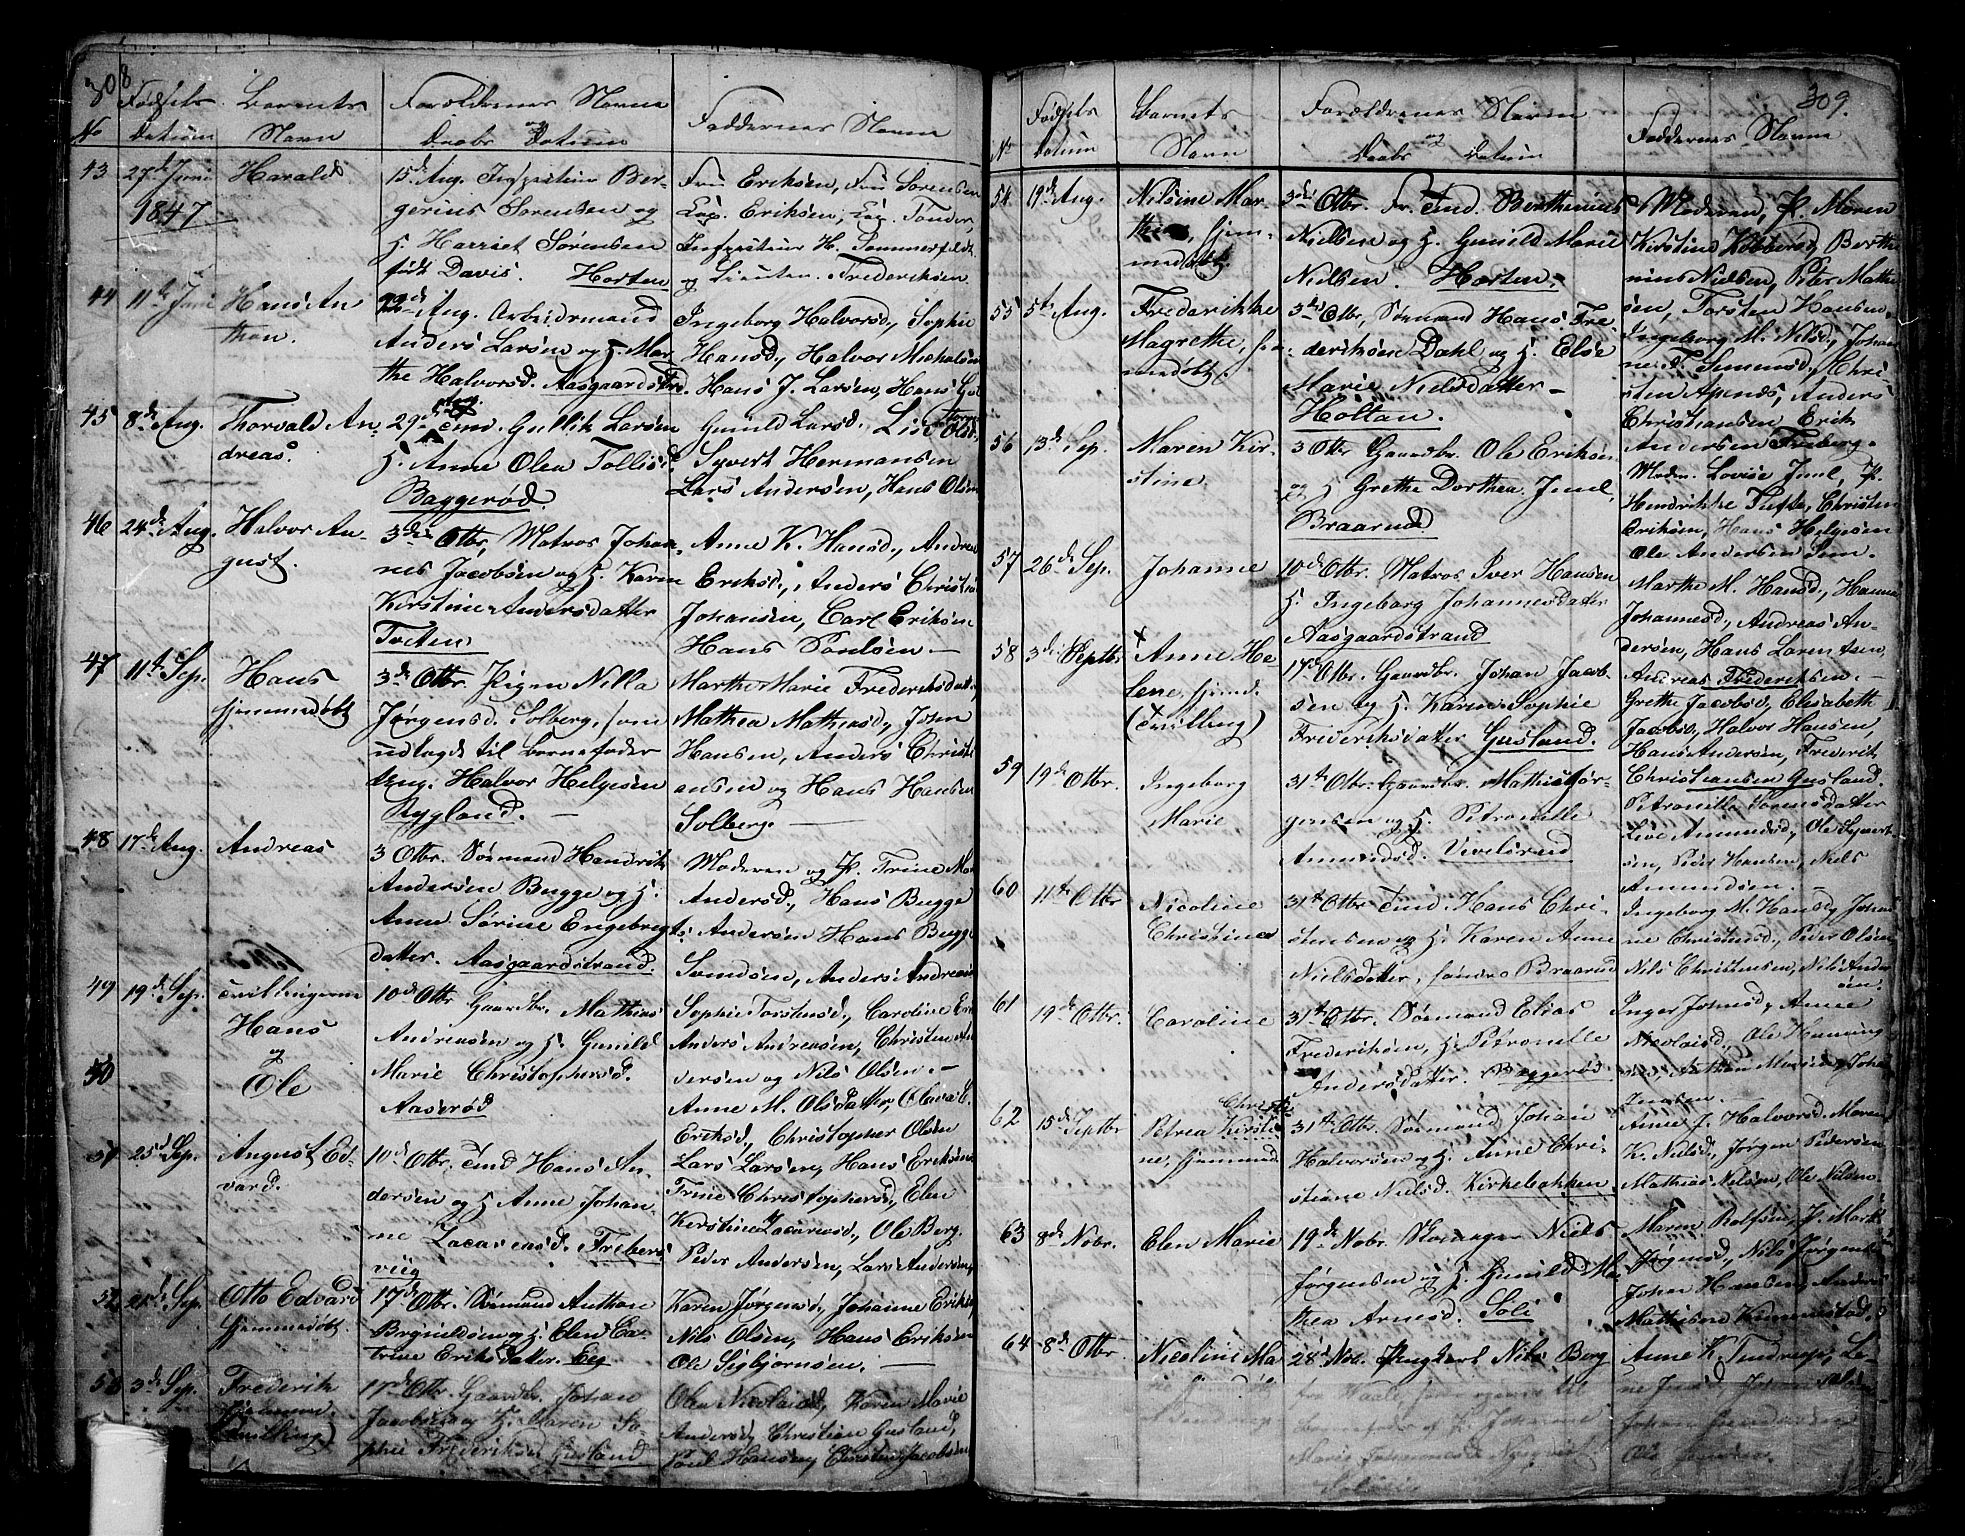 308
No
Fødsels
Datum
Barnets
Navn
Forældrenes Navne
og
Daabs Datum
Faddernes Navne
43
27de Juni
1847
Harald
15de Aug. Inspecteur Ber-
gerius Sørensen og
H. Harriet Sørensen
født Davis. Horten
Fru Eriksen, Fru Sørensen
Cap. Eriksen,
Inspecteur H. Sommerfeldt
og Lieuten. Frederiksen
44
11te Juni
Hans An
thon.
22de Aug. Arbeidsmand
Anders Larsen og H. Mar
the Halvorsd. Aasgaardstrd.
Ingeborg Halvorsd., Sophie
Hansd., Halvor Michelsen
Hans J. Larsen, Hans
45
8de Aug.
Thorvald An-
dreas.
29de Aug. Gullik Larsen
H. Anne Olea Tollisd.
Baggerød.
Gunild Larsd.
Syvert Hermansen
Lars Andersen, Hans Olsen
46
24de Aug.
Halvor Au-
gust.
3de Otbr, Matros Johan-
nes Jacobsen og H. Karen
Kirstine Andersdatter
Tveten
Anne K. Hansd., Andrea
Eriksd., Anders Christia
Johansen, Carl Eriksen
Hans Poulsen —
47
11te Sep.
Hans
hjemmedøbt
3de Otbr. Pigen Nilla
Jørgensd. Solberg, som
udlagde til barnefader
Ung. Halvor Helgesen
Rygland. —
Marthe Marie Frederiksdatt.,
Mathea Mathiasd., John
Hansen, Anders Christi
ansen og Hans Hansen
Solberg. —
48
17de Aug.
Andreas
3 Otbr. Sømand Hendrik
Andersen Bugge og H.
Anne Sørine Engebregts
datter. Aasgaardstrand.
Moderen og P. Trine M
Andersd., Hans Bugge
Andersen Hans Bugge
Svendsen, Anders Andreas
49
19de Sep.
Tvillingerne
Hans
og
50
Ole
10de Otbr Gaardbr. Mathias
Andreasen og H. Gunild
Marie Christophersd.
Aaserød
Sophie Torstensd., Caroline
Anders Andreasen, Christen An
dersen og Nils Olsen. —
Anne M. Olsdatter, Olava E.
Eriksd., Christopher Olsen
Lars Larsen, Hans Eriksen
51
25de Sep.
August Ed-
vard.
10de Otbr. Hans An-
dersen og H Anne Johan-
ne Zacariasd. Frebers-
viig
Trine Christophersd., Elen
Kirstine Zacariasd., Ole Berg.
Peder Andersen, Lars Andersen
52
21de Sep.
Otto Edvard
hjemmedøbt.
17de Otbr. Sømand Anthon
Brynildsen og H. Elen Ca-
trine Eriksdatter. Eeg
Karen Jørgensd., Johanne Eriks
Nils Olsen, Hans Eriksen
Ole Sigbjørnsen. —
53
3de Sep.
Frederik
hjemmed.
(Tvilling)
17de Otbr. Gaardbr. Johan
Jacobsen og H. Karen So-
phie Frederiksd. Gusland
Olea Nicolaisd., Karen Marie
Andersd., Christian Gusland,
Poul Hansen, Christen Jacobsen
309.
No
Fødsels
Datum
Barnets
Navn
Forældrenes Navne
og
Daabs Datum
Faddernes Navne
54
19de Aug.
Nilsine Mar-
thea, hjem-
medøbt.
3de Otbr. Fr. Tmd. Berthenius
Nielsen og H. Gunild Marie
Nielsen. Horten —
Moderen, P. Maren
Kirstine Berthe
nius Nielsen, Peter Mathe
sen, Torsten Hansen.
55
5te Aug.
Frederikke
Magrethe, hje-
medøbt.
3de Otbr, Sømand Hans Fre-
deriksen Dahl og H. Else
Marie Nielsdatter —
Holtan.
Ingeborg M. Nilsd., Johan
ne D. Simensd., Chri-
sten Apenæs, Anders
Christiansen Erik
Andersen Freberg.
56
13de Sep.
Maren Kir-
stine.
3 Otbr Gaardbr. Ole Eriksen
og H Grethe Dorthea Juul.
Braarud
Moder. Lovise Juul, P.
Hendrikke Tufte, Christen
Eriksen, Hans Helgesen
Ole Andersen Sem.
57
26de Sep.
Johanne
10de Otbr. Matros Iver Hansen
H. Ingeborg Johannesdatter
Aasgaardstrand
Marthe M. Hansd., Hanna
Johannesd., Andreas An-
dersen, Hans Larentsen
Andreas Frederiksen. —
58
3de Septbr
Anne He
lene, hjemd.
(Tvilling)
17de Otbr. Gaardbr. Johan Jacob-
sen og H. Karen Sophie
Frederiksdatter Gusland.
Grethe Jacobsd., Elisabeth
Jacobsd., Halvor Hansen,
Hans Andersen, Frederik
Christiansen Gusland.
59
19de Otbr.
Ingeborg
Marie
31te Otbr. Gaardbr. Mathis Jør-
gensen og H. Petronelle
Amundsd. Vivelsrud
Petronille Sørensdatter
Live Amundsd., Ole Syvert
sen, Peder Hansen, Niels
Amundsen. —
60
11te Otbr
Nicoline
Christine
31te Otbr. Tmd. Hans Chri-
stensen og H. Karen Anne
Nielsdatter, søndre Braarud
Ingeborg M. Hansd., Johan
ne Christensd., Peder Olsen
Nils Christensen, Nils Ander
sen.
61
19de Otbr.
Caroline
31te Otbr. Sømand Elias
Frederiksen, H. Petronelle
Andersdatter. Baggerød.
Inger Johnsd., Anne
Nicolaisd., Ole Henning
62
15de Septbr
Petrea Kirsti
ne, hjemmed.
31te Otbr. Sømand Johan
Halvorsen og H. Anne Chri-
stiane Nielsd. Kirkebakken
Anne J. Halvorsd. Maren
K. Nielsd., Jørgen Pedersen
Mathias Nilsen, Ole Nilsen.
63
8de Nobr.
Elen Marie
19de Nobr. Niels
Jørgensen og H. Gunild Ma
thea Arnesd. Soli
Maren Rolfsen, P. Mart
Jørgensd., Nils Jørgens
Johan Hansen, Anders
Mathisen
64
8de Otbr
Nicoline Ma
28de Nov. Ungkarl Nils Berg
Anne K. Le-
Ole